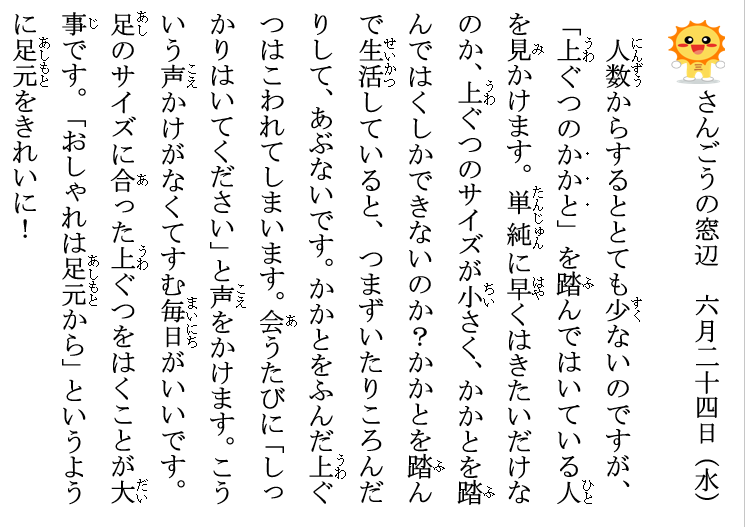 さんごうの窓辺　六月二十四日（水）
人数からするととても少ないのですが、
「上ぐつのかかと」を踏んではいている人
を見かけます。単純に早くはきたいだけな
のか、上ぐつのサイズが小さく、かかとを踏
んではくしかできないのか？かかとを踏ん
で生活していると、つまずいたりころんだ
りして、あぶないです。かかとをふんだ上ぐ
つはこわれてしまいます。会うたびに「しっ
かりはいてください」と声をかけます。こう
いう声かけがなくてすむ毎日がいいです。
足のサイズに合った上ぐつをはくことが大
事です。「おしゃれは足元から」というよう
に足元をきれいに！